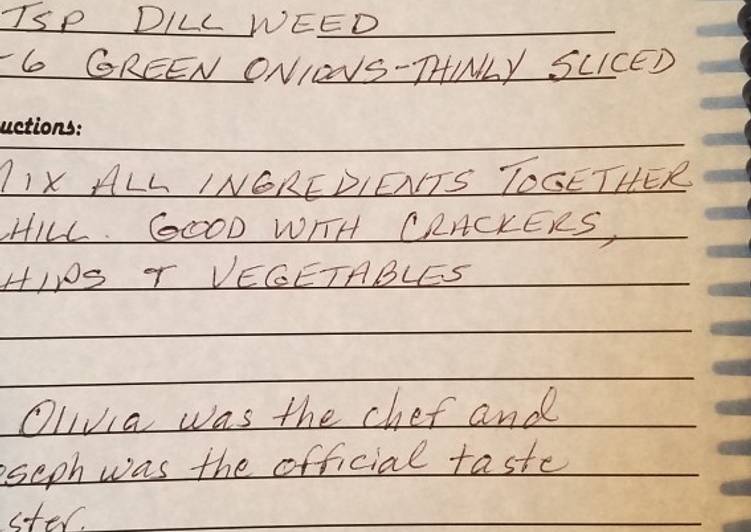 TSP DILL WEED
-6 GREEN ONIONS-THINLY SLICED
uctions:
MIX ALL INGREDIENTS TOGETHER
CHILL. GOOD WITH CRACKERS,
HIPS & VEGETABLES
Olivia was the chef and
oseph was the official taste
ster.